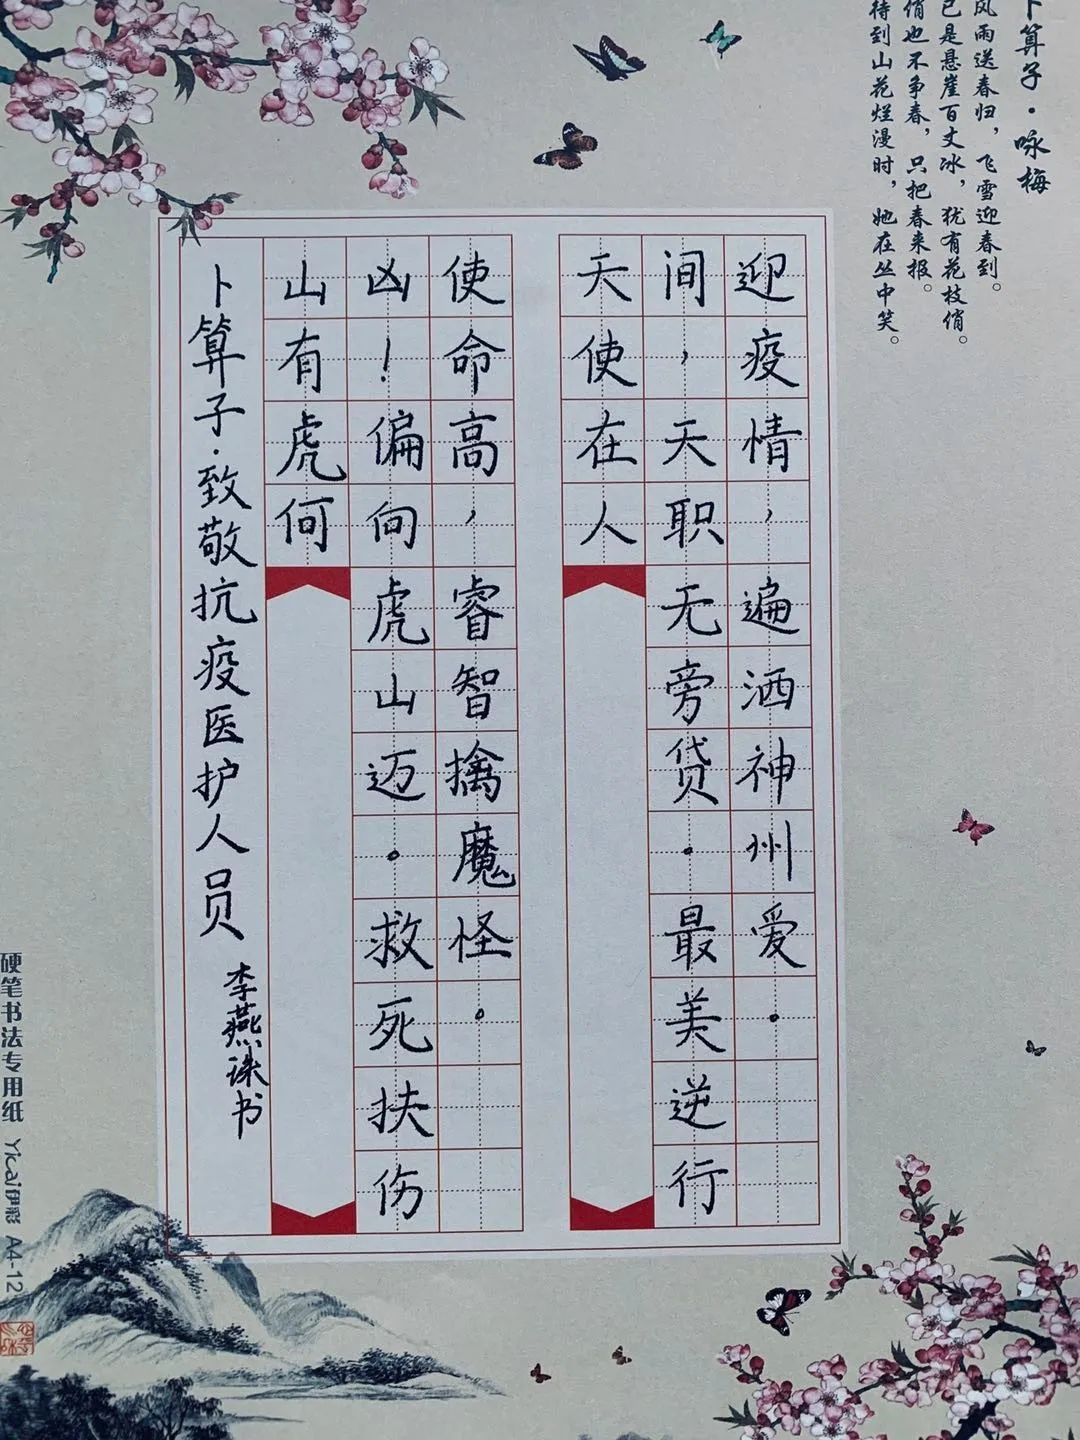 卜算子·咏梅
风雨送春归，飞雪迎春到。
已是悬崖百丈冰，犹有花枝俏。
俏也不争春，只把春来报。
待到山花烂漫时，她在丛中笑。
迎疫情，遍洒神州爱。
间，天职无旁贷。最美逆行
天使在人
使命高，睿智擒魔怪。
凶！偏向虎山迈。救死扶伤
山有虎何
卜算子·致敬抗疫医护人员
李燕 书
硬笔书法专用纸 Yicai伊彩 A4-12